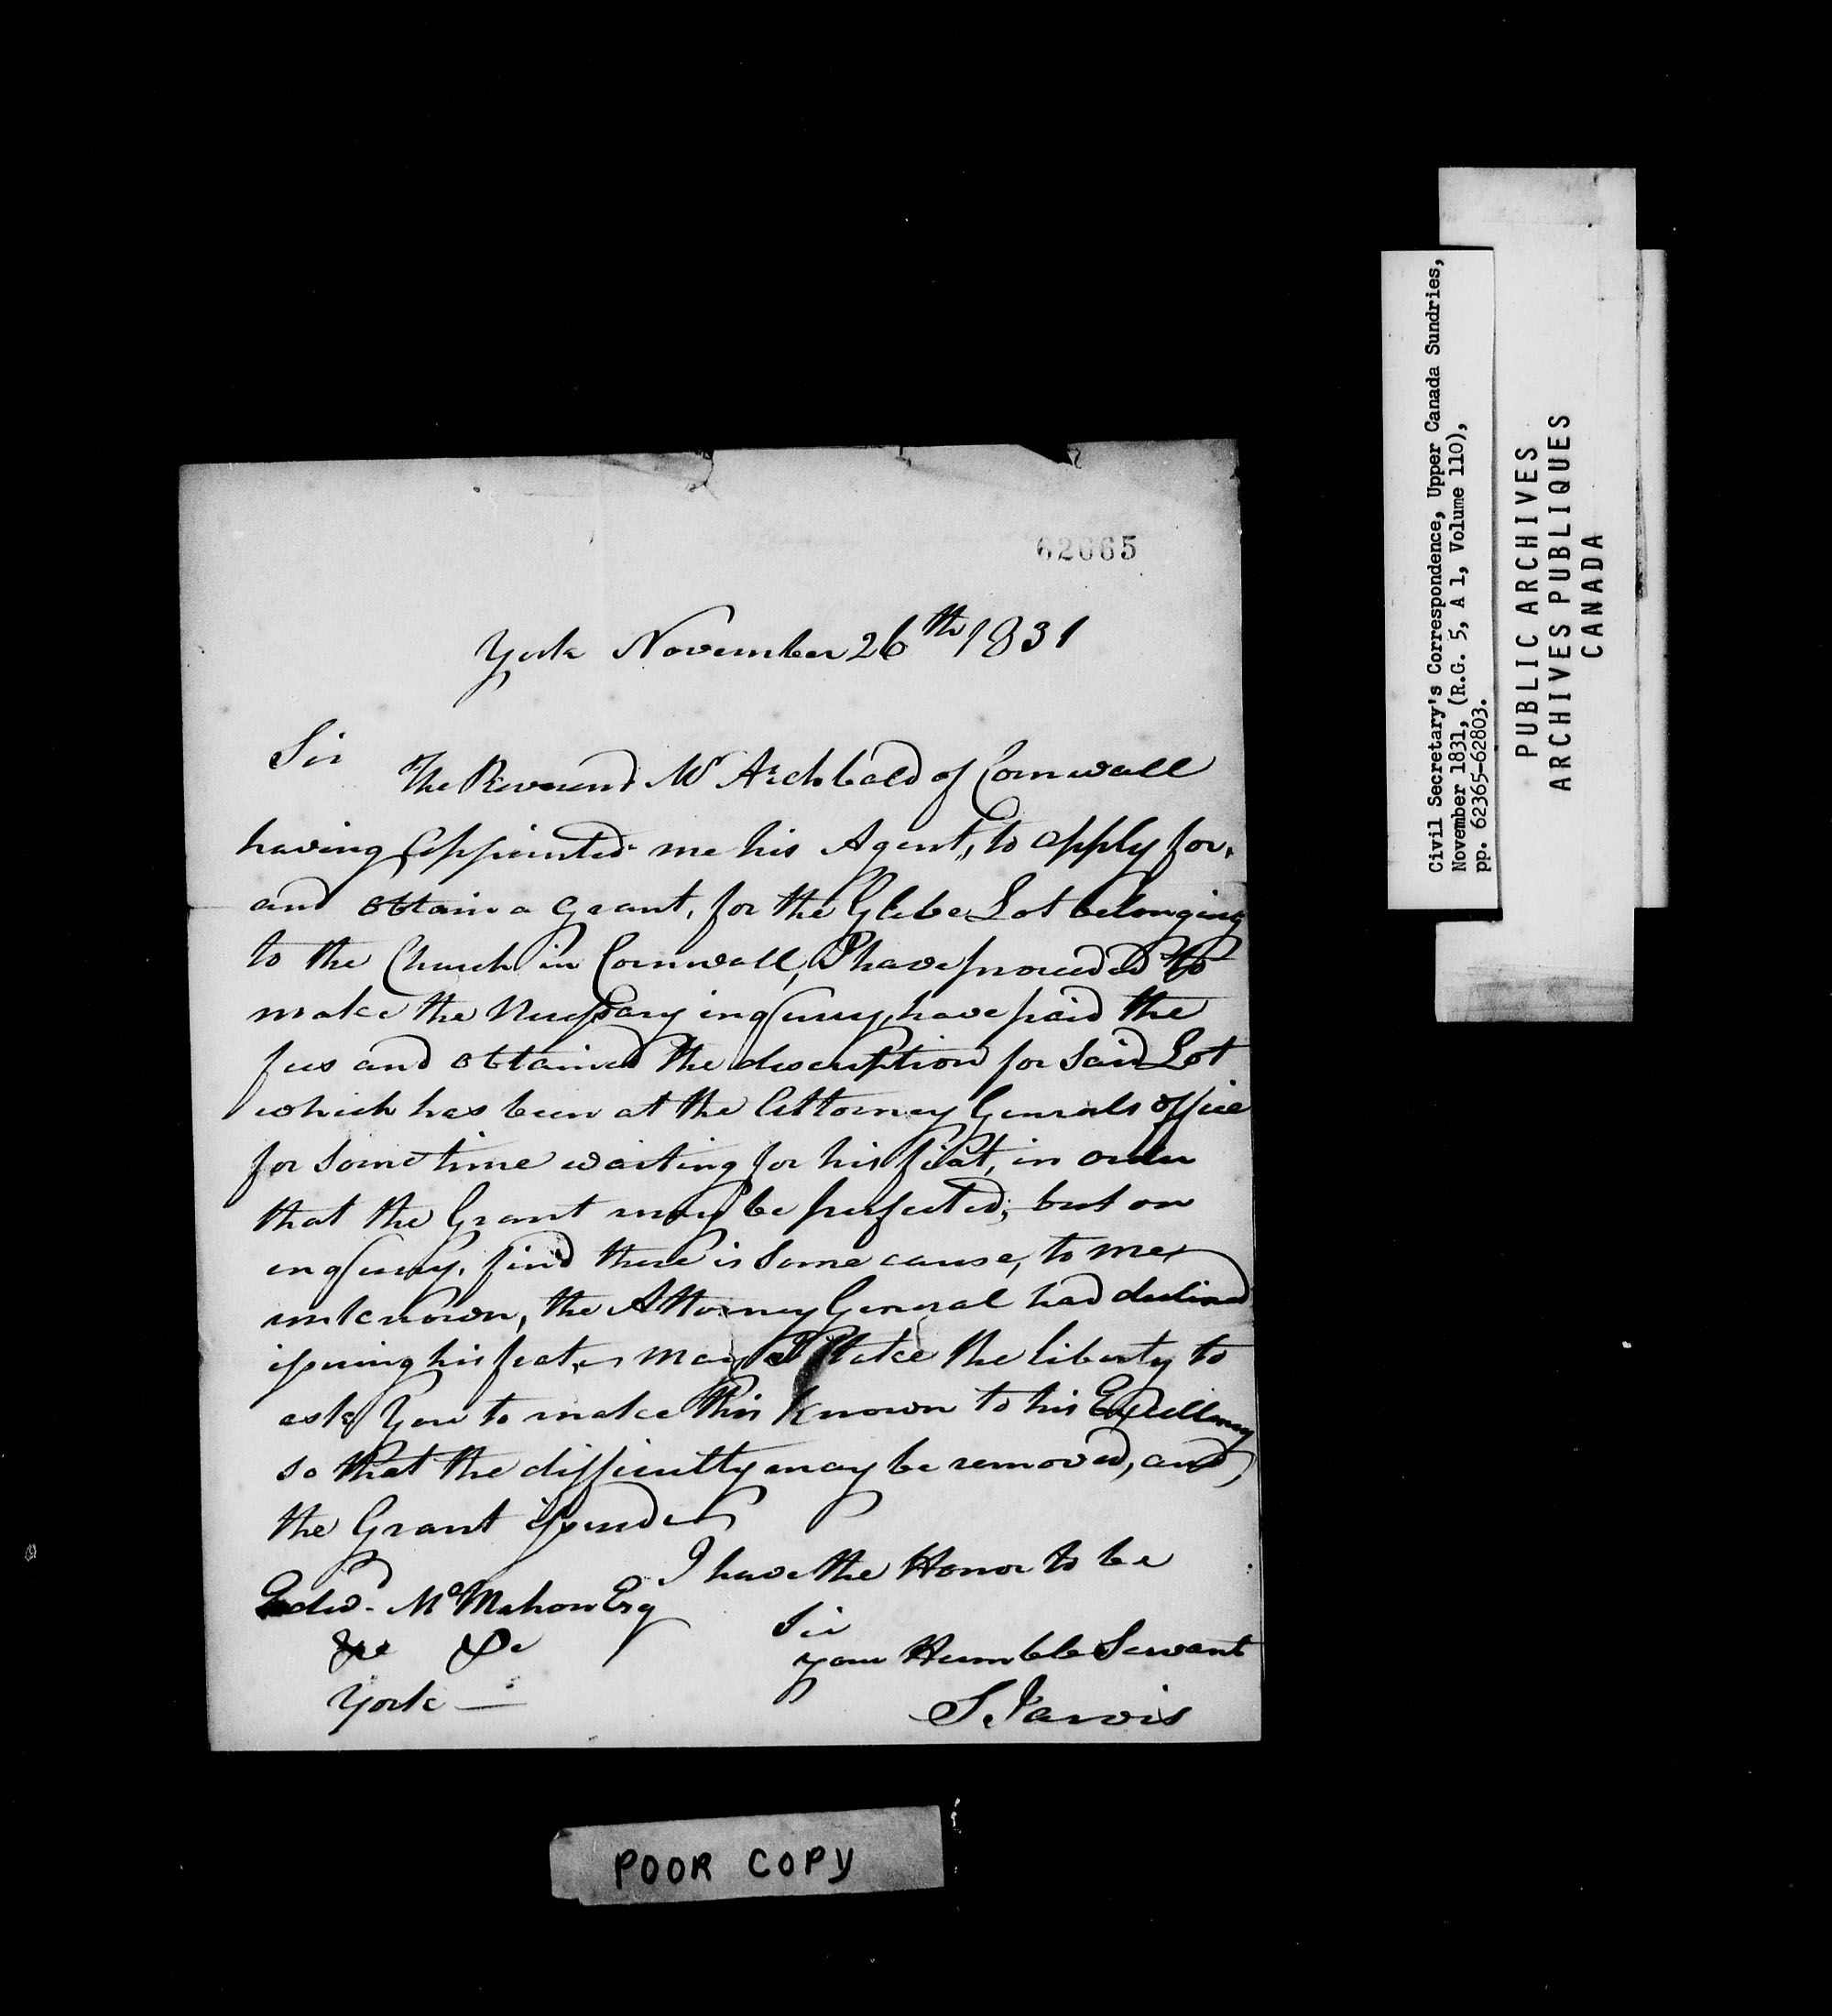 62665
York November 26th 1831
Sir
The Reverend Mr Archbald of Cornwall
having appointed me his Agent, to apply for,
and obtain a Grant, for the Glebe Lot belonging
to the Church in Cornwall, I have proceeded to
make the Necessary inquiry, have paid the
fees and obtained the description for said Lot
which has been at the Attorney Generals office
for some time waiting for his fiat, in order
that the Grant may be perfected, but on
inquiry, find there is some cause, to me
unknown, the Attorney General had declined
issuing his fiat, may I take the liberty to
ask You to make this known to his Excellency
so that the difficulty may be removed, and
the Grant issued
I have the Honor to be
Sir
your Humble Servant
S. Jarvis
Edwd. McMahon Esq
&c &c
York
POOR COPY
Civil Secretary's Correspondence, Upper Canada Sundries,
November 1831, (R.G. 5, A 1, Volume 110),
pp. 62365-62803.
PUBLIC ARCHIVES
ARCHIVES PUBLIQUES
CANADA